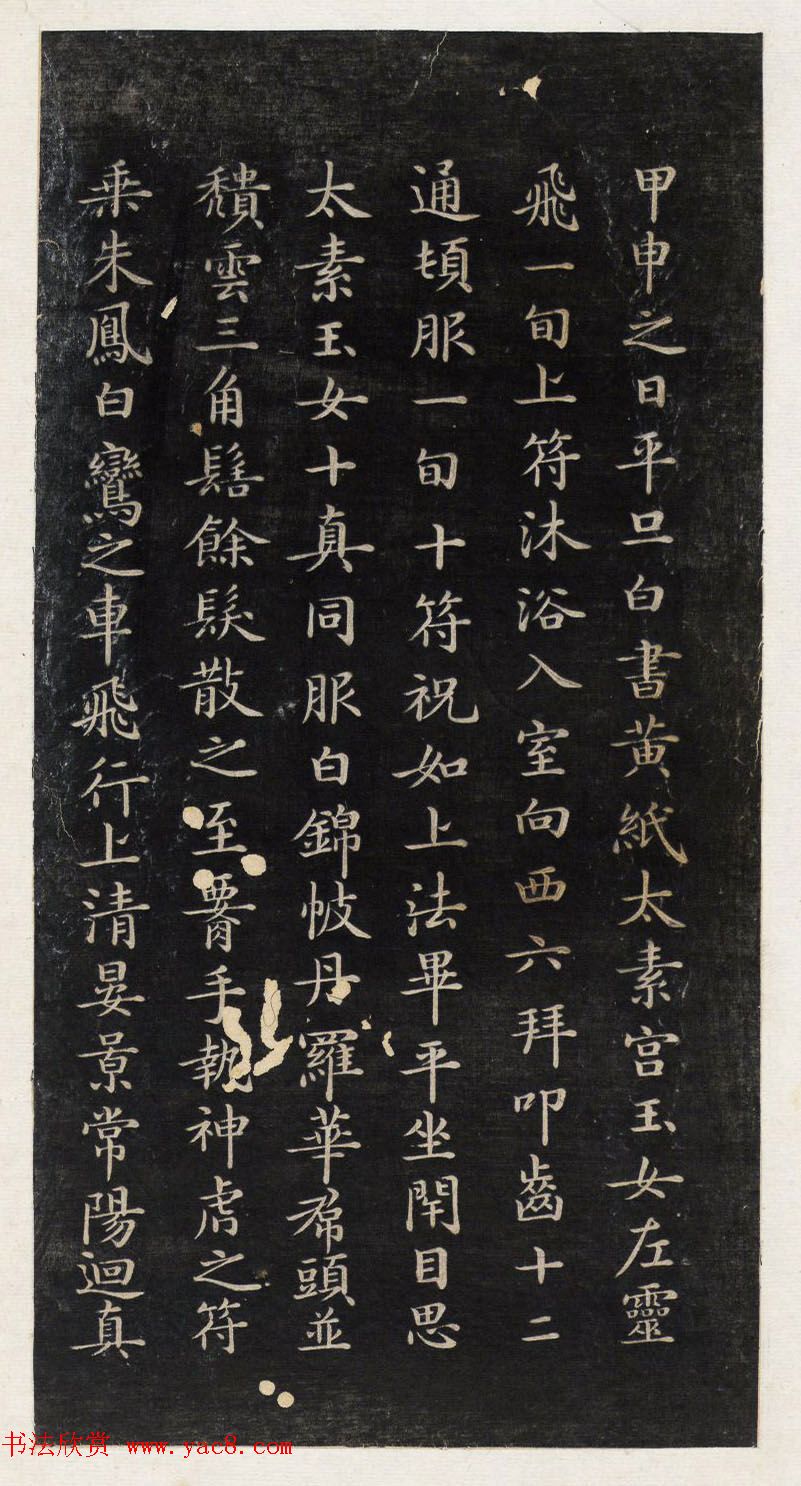 甲申之日平旦白書黃紙太素宮玉女左靈
飛一旬上符沐浴入室向西六拜叩齒十二
通頓服一旬十符祝如上法畢平坐閇目思
太素玉女十真同服白錦帔丹羅華帬頭並
頹雲三角髻餘髮散之至腰手執神虎之符
乗朱鳳白鸞之車飛行上清晏景常陽迴真
书法欣赏 www.yac8.com